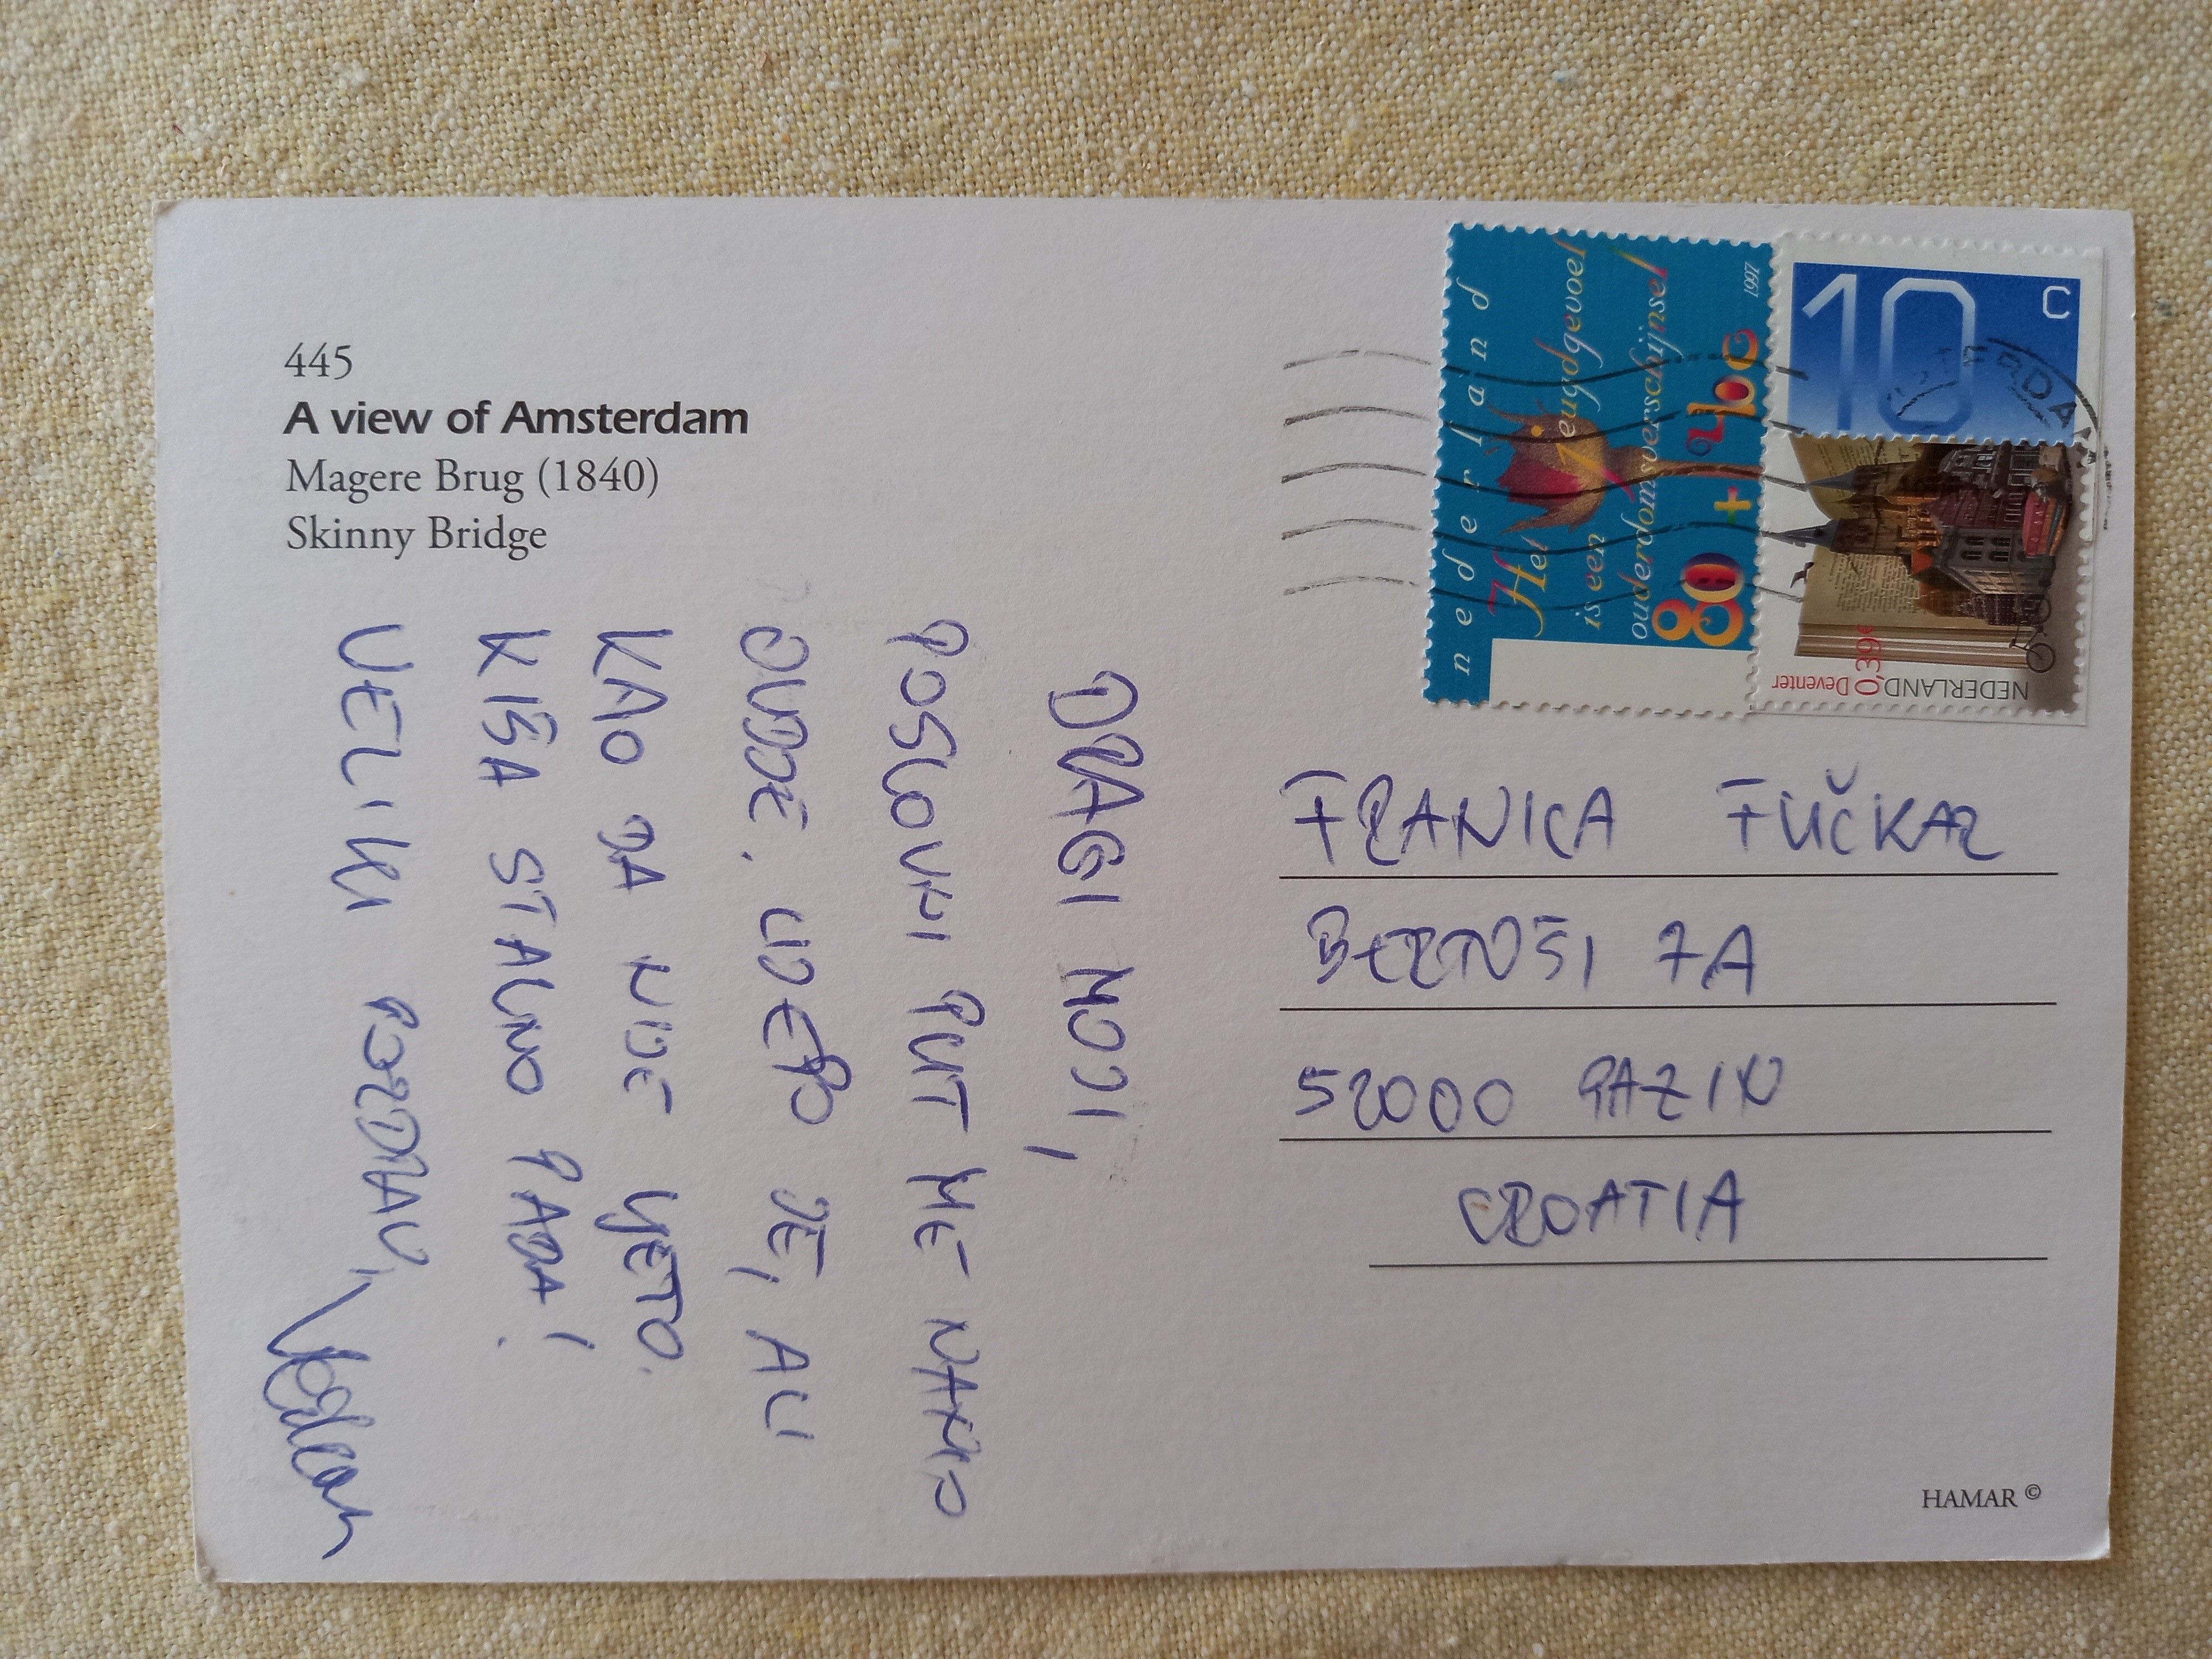 445
A view of Amsterdam
Magere Brug (1840)
Skinny Bridge
DRAGI MOJI,
POSLOVNI PUT ME NANIO
OVDJE. LIJEPO JE, ALI
KAO DA NIJE LJETO.
KIŠA STALNO PADA!
VELIKI POZDRAV,
nederland
Het jeugdgevoel
is een
ouderdomsverschijnsel
80 + 40 c
1997
10 c
NEDERLAND 0,39€
Deventer
FRANICA FUČKAR
52000 PAZIN
CROATIA
HAMAR ©